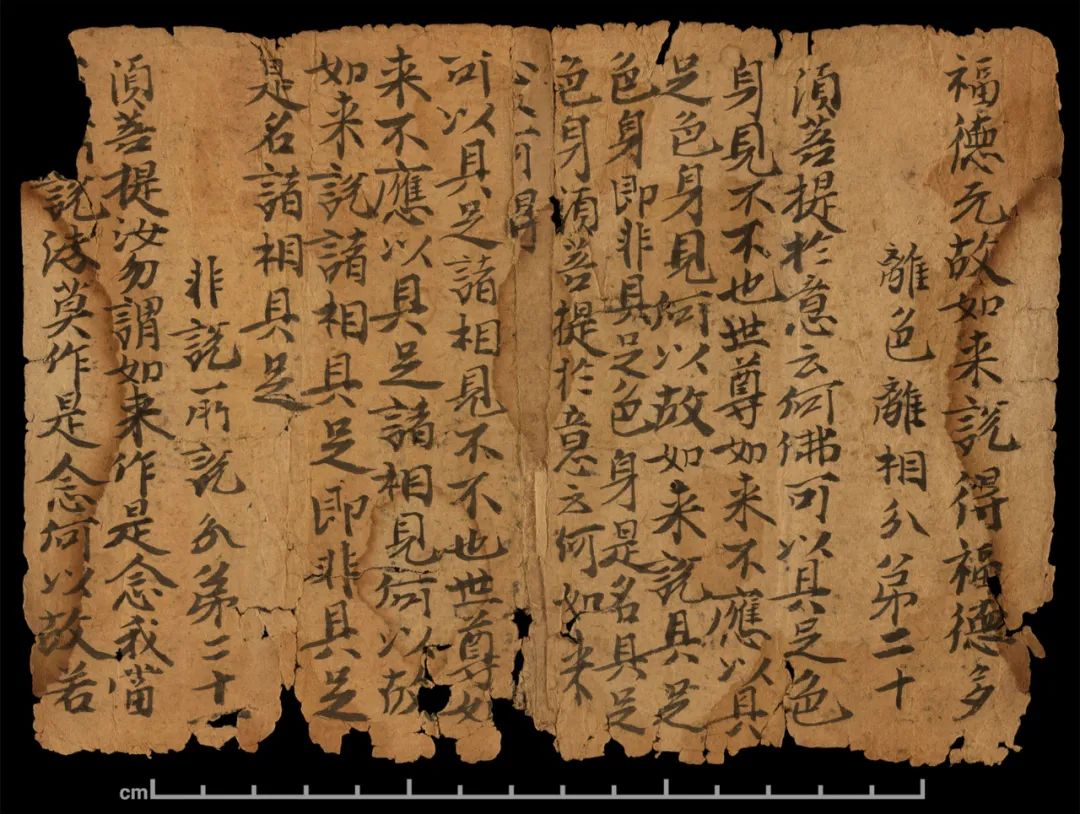 福德无故如来說得福德多
離色離相分苐二十
湏菩提扵意云何佛可以具足色
身見不不也世尊如来不應以具
足色身見何以故如来說具足
色身即非具足色身是名具足
色身湏菩提扵意云何如来
得
可以具足諸相見不不也世尊如
来不應以具足諸相見何以故
如来說諸相具足即非具足
是名諸相具足
非說所說分苐二十一
湏菩提汝勿謂如来作是念我當
說法莫作是念何以故若